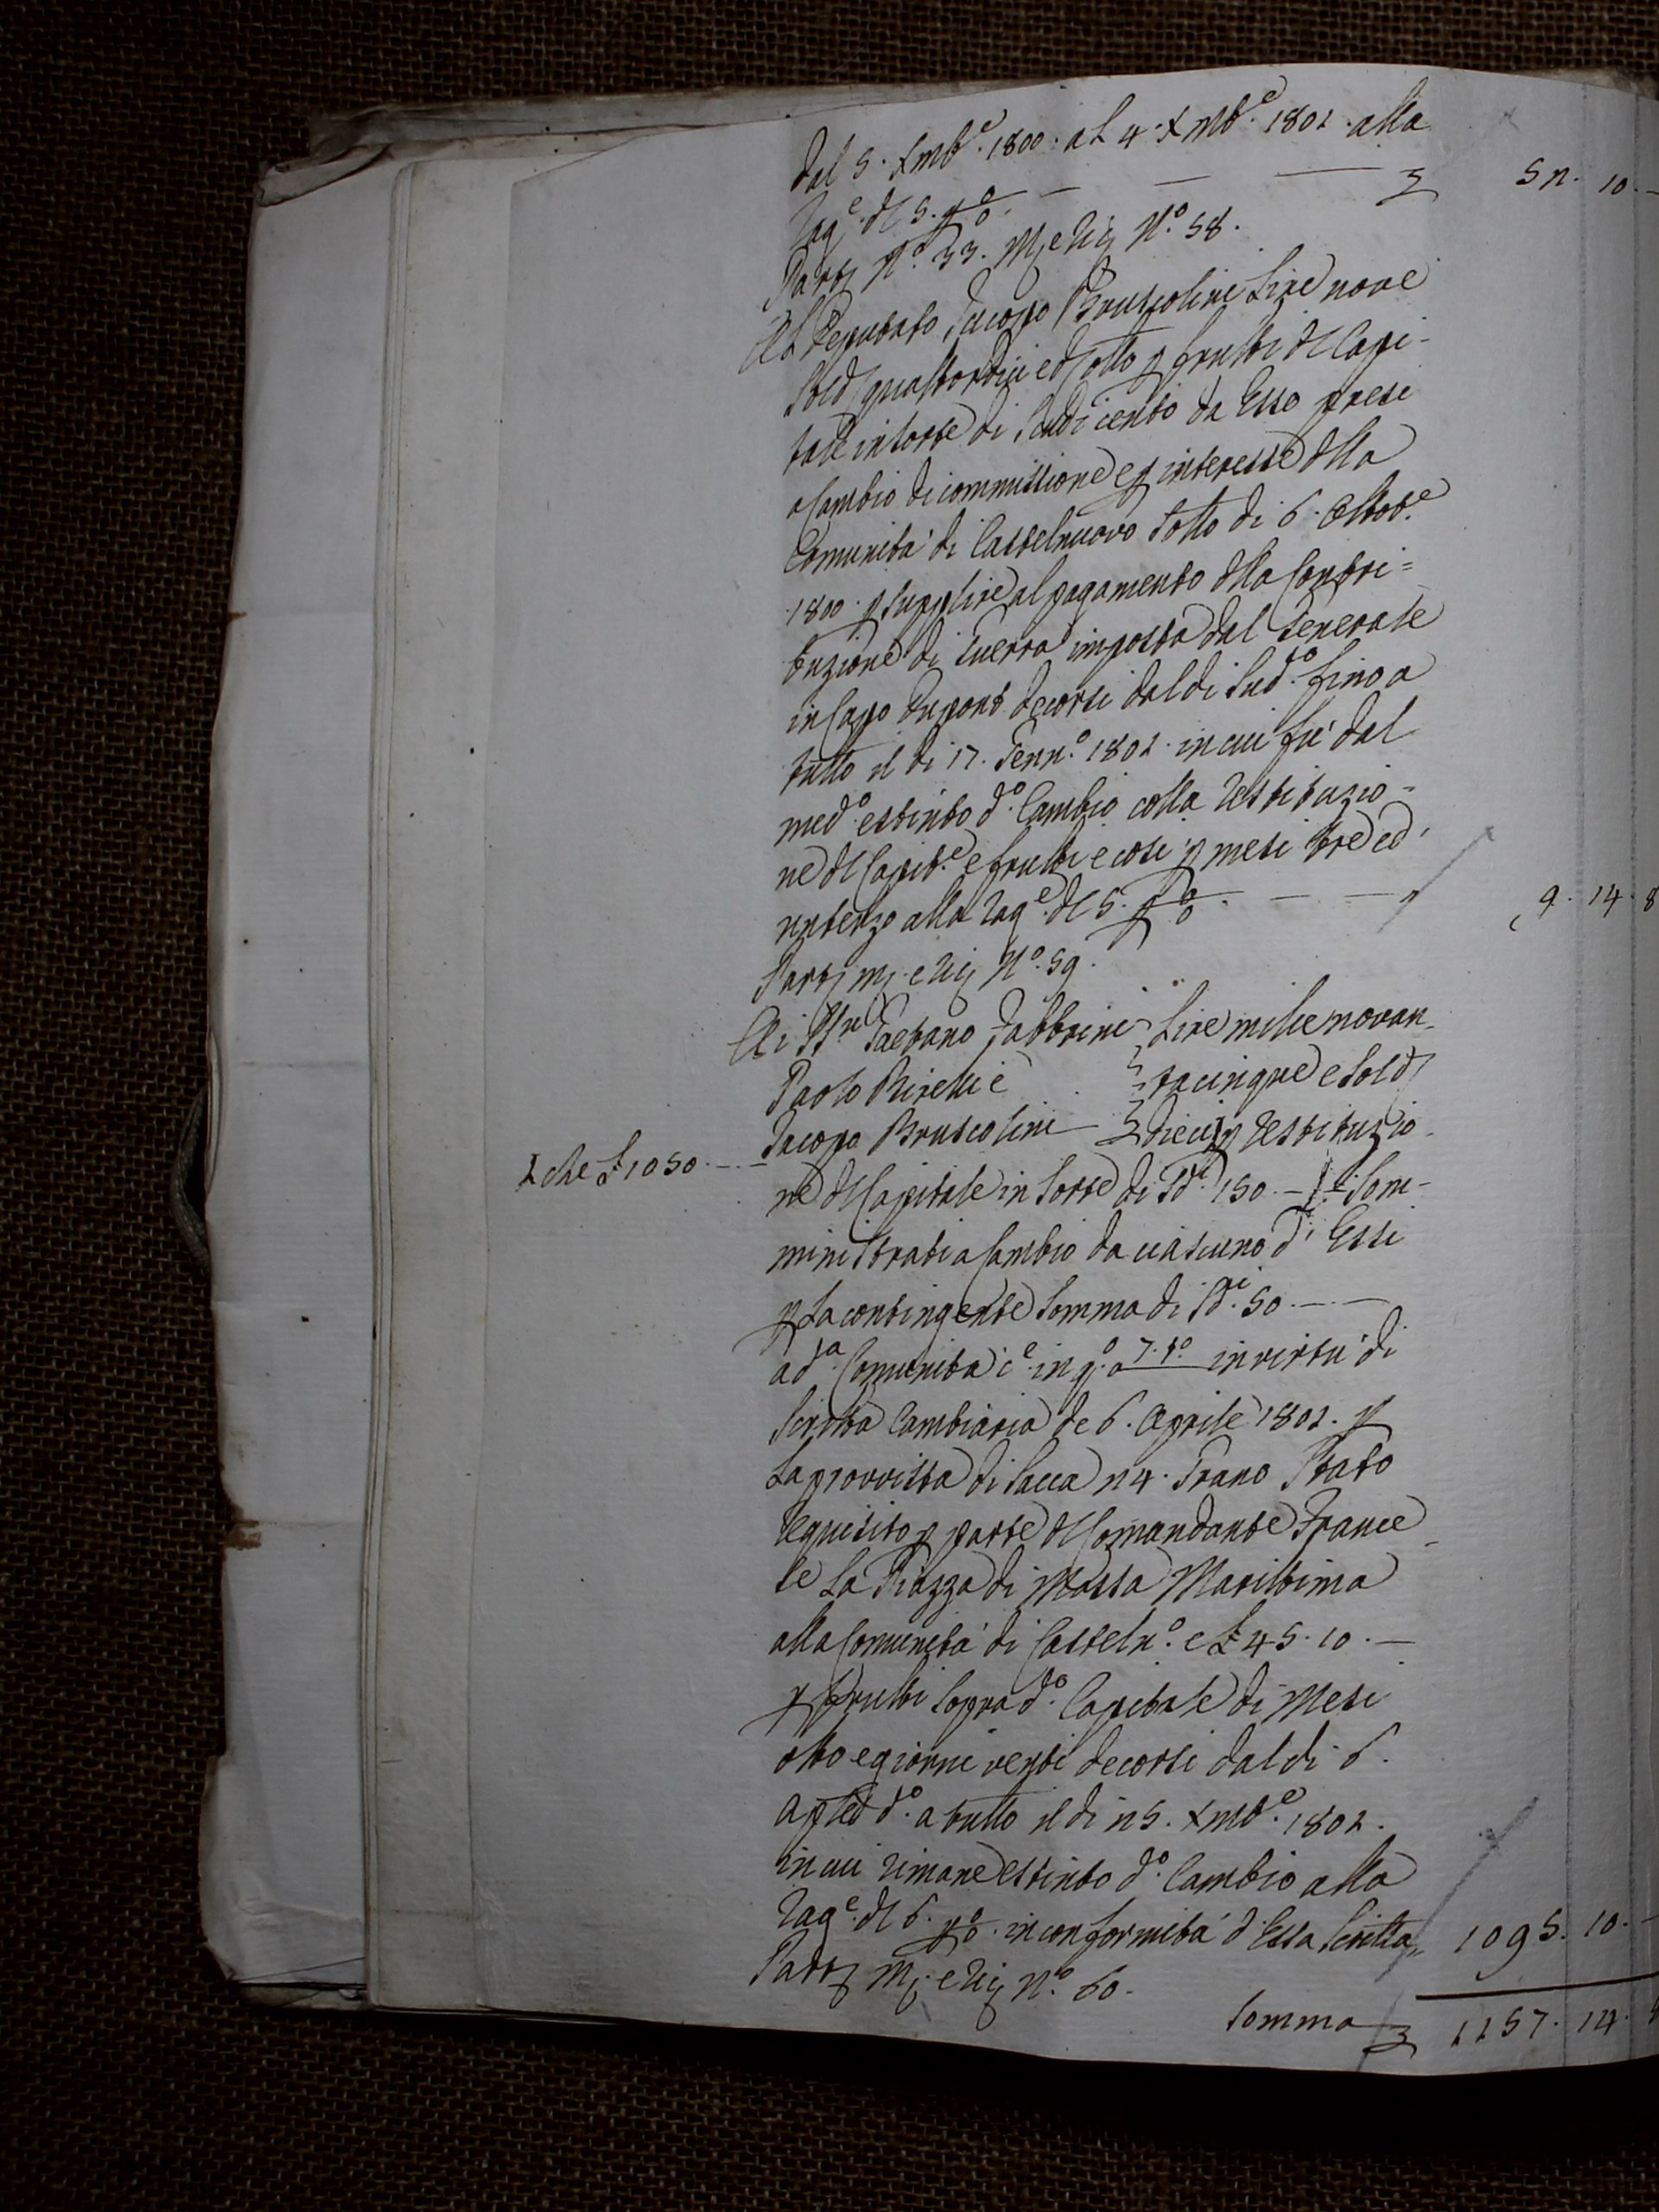 dal 5. Xmb.e 1800. al 4. Xmb.e 1801. alla
Rag.e del 5. p% — — — 52. 10. —
Part N.o 33. M e Rig N.o 58.
Al Deputato Jacopo Bruscolini Lire nove
Sold quattordici ed otto p frutti del Capi-
tale in sorte di Scudi cento da Esso presi
a Cambio di commissione e p interesse della
Comunità di Castelnuovo sotto di 6. Ottob.e
1800. p supplire al pagamento della Contri=
buzione di Guerra imposta dal Generale
in Capo Dupont decorsi dal di sud.o fino a
tutto il di 17. Genn.o 1801. in cui fu dal
med.o estinto d.o Cambio colla restituzio-
ne del Capit.e e frutti e così p mesi tre ed
un terzo alla Rag.e del 5. p% — — 9. 14. 8
Part M e Rig N.o 59.
Ai SS.ri Gaetano Fabbrini Lire mille novan-
Paolo Birelli e tacinque e Sold
Jacopo Bruscolini dieci p restituzio-
L che £ 1050. —
ne del Capitale in sorte di Sd.i 150. — Som-
ministrati a Cambio da ciascuno d'Essi
p la contingente somma di Sd.i 50. —
a d.ta Comunità e in in virtù di
Scritta Cambiaria de 6. Aprile 1802. p
la provvista di Sacca 24. Grano Stato
requisito p parte del Comandante France-
se la Piazza di Massa Marittima
alla Comunità di Casteln.o e £ 45. 10. —
p frutti sopra d.o Capitale di Mesi
otto e giorni venti decorsi dal di 6.
Aple d.o a tutto il di 25. Xmb.e 1802.
in cui rimane estinto d.o Cambio alla
Rag.e del 6. p% in conformità d'Essa Scritta 1095. 10. —
Part M e Rig N.o 60.
Somma 1157. 14.